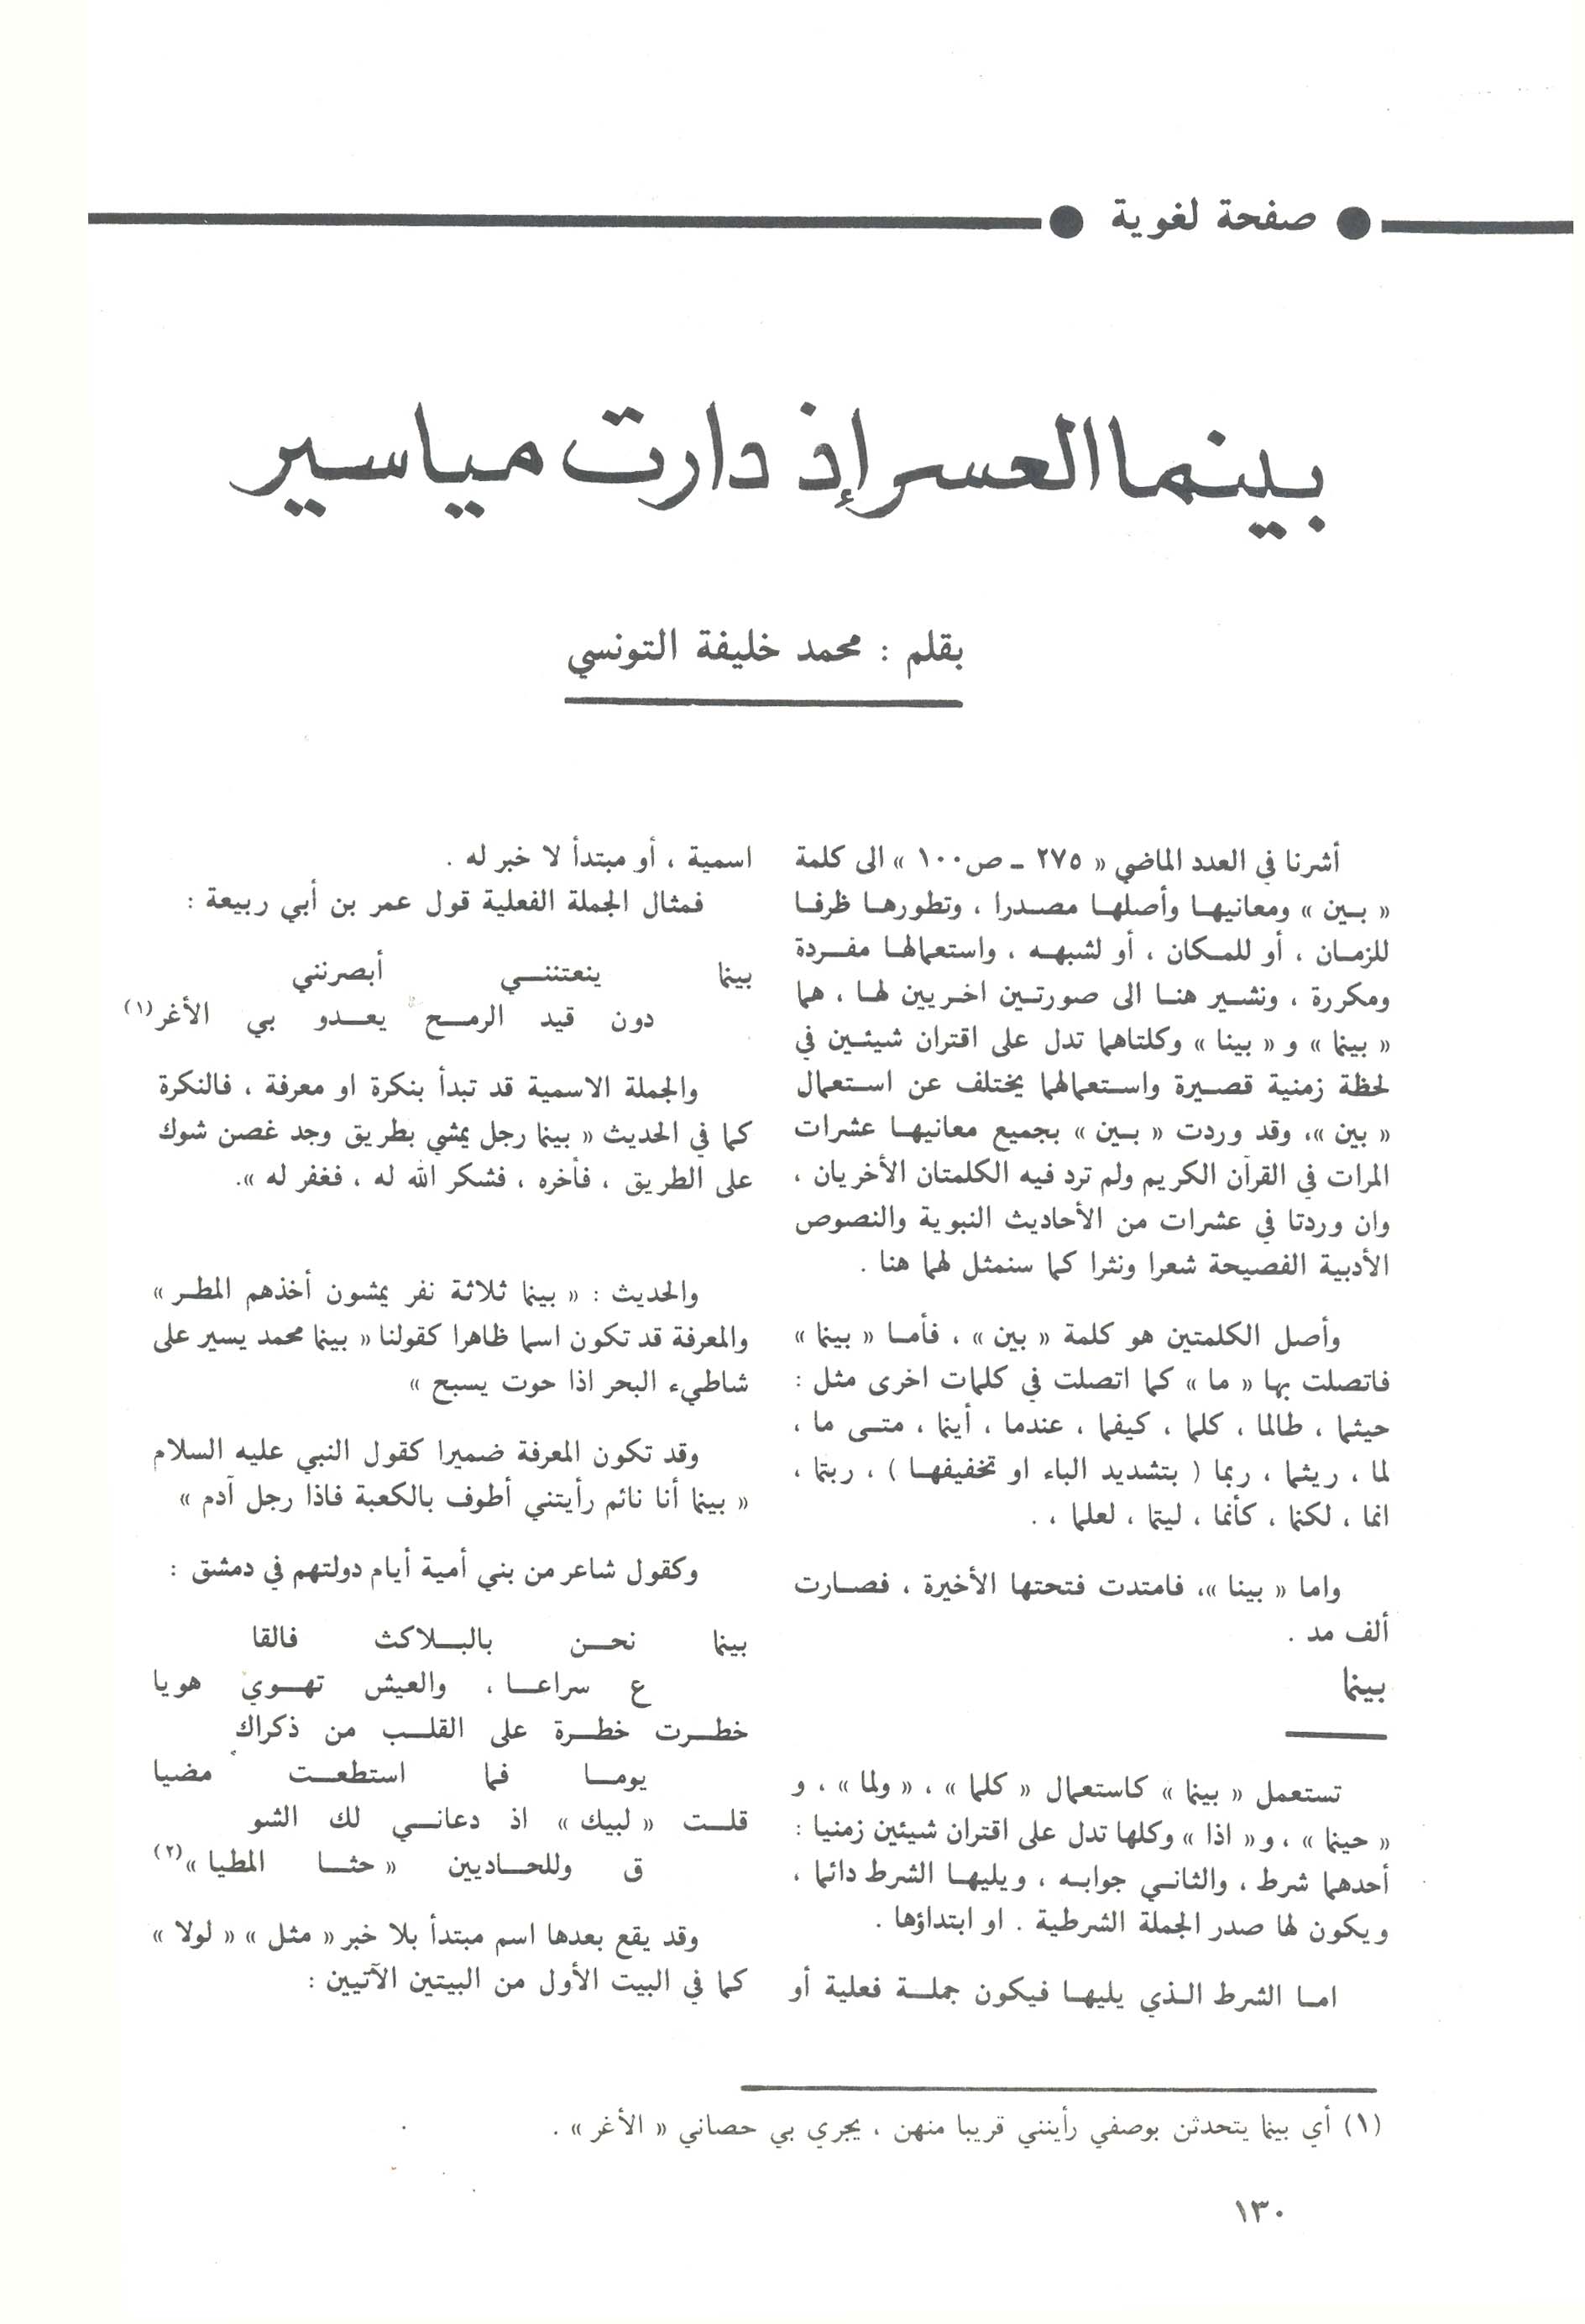 صفحة لغوية
بينما العسر إذ دارت مياسير
بقلم : محمد خليفة التونسي
أشرنا في العدد الماضي « ٢٧٥ ـ ص١٠٠ » الى كلمة
« بين » ومعانيها وأصلها مصدرا ، وتطورها ظرفا
للزمان ، أو للمكان ، أو لشبهه ، واستعمالها مفردة
ومكررة ، ونشير هنا الى صورتين اخريين لها ، هما
« بينما » و « بينا » وكلتاهما تدل على اقتران شيئين في
لحظة زمنية قصيرة واستعمالهما يختلف عن استعمال
« بين »، وقد وردت « بين » بجميع معانيها عشرات
المرات في القرآن الكريم ولم ترد فيه الكلمتان الأخريان ،
وان وردتا في عشرات من الأحاديث النبوية والنصوص
الأدبية الفصيحة شعرا ونثرا كما سنمثل لهما هنا .
وأصل الكلمتين هو كلمة « بين » ، فأما « بينما »
فاتصلت بها « ما » كما اتصلت في كلمات اخرى مثل :
حيثما ، طالما ، كلما ، كيفما ، عندما ، أينما ، متى ما ،
لما ، ريثما ، ربما ( بتشديد الباء او تخفيفها ) ، ربتما ،
انما ، لكنما ، كأنما ، ليتما ، لعلما ، .
واما « بينا »، فامتدت فتحتها الأخيرة ، فصارت
ألف مد .
بينما
تستعمل « بينما » كاستعمال « كلما » ، « ولما » ، و
« حينما » ، و « اذا » وكلها تدل على اقتران شيئين زمنيا :
أحدهما شرط ، والثاني جوابه ، ويليها الشرط دائما ،
ويكون لها صدر الجملة الشرطية . او ابتداؤها .
اما الشرط الذي يليها فيكون جملة فعلية أو
اسمية ، أو مبتدأ لا خبر له .
فمثال الجملة الفعلية قول عمر بن أبي ربيعة :
بينما ينعتنني أبصرنني
دون قيد الرمح يعدو بي الأغر (١)
والجملة الاسمية قد تبدأ بنكرة او معرفة ، فالنكرة
كما في الحديث « بينما رجل يمشي بطريق وجد غصن شوك
على الطريق ، فأخره ، فشكر الله له ، فغفر له ».
والحديث : « بينما ثلاثة نفر يمشون أخذهم المطر »
والمعرفة قد تكون اسما ظاهرا كقولنا « بينما محمد يسير على
شاطيء البحر اذا حوت يسبح »
وقد تكون المعرفة ضميرا كقول النبي عليه السلام
« بينما أنا نائم رأيتني أطوف بالكعبة فاذا رجل آدم »
وكقول شاعر من بني أمية أيام دولتهم في دمشق :
بينما نحن بالبلاكث فالقا
ع سراعا ، والعيش تهوي هويا
خطرت خطرة على القلب من ذكراك
يوما فما استطعت مضيا
قلت « لبيك » اذ دعاني لك الشو
ق وللحاديين « حثا المطيا » (٢)
وقد يقع بعدها اسم مبتدأ بلا خبر « مثل » « لولا »
كما في البيت الأول من البيتين الآتيين :
(١) أي بينما يتحدثن بوصفي رأينني قريبا منهن ، يجري بي حصاني « الأغر » .
١٣٠